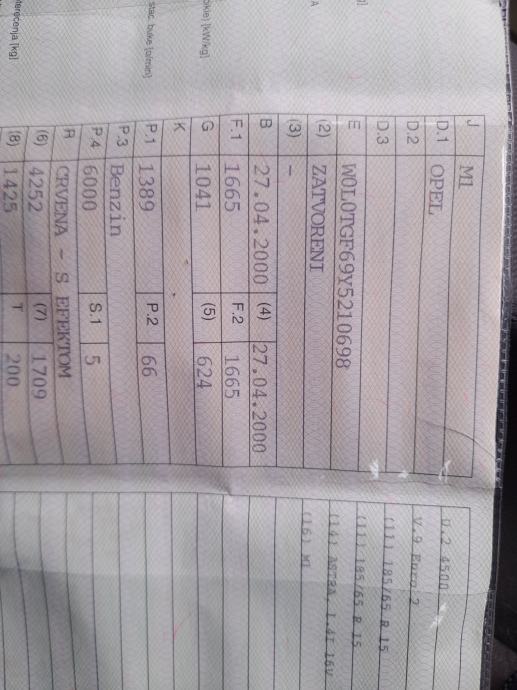 J M1
D.1 OPEL
D.2
D.3
E W0L0TGF69Y5210698
(2) ZATVORENI
(3) -
B 27.04.2000 (4) 27.04.2000
F.1 1665 F.2 1665
G 1041 (5) 624
K
P.1 1389 P.2 66
P.3 Benzin
P.4 6000 S.1 5
R CRVENA - S EFEKTOM
(6) 4252 (7) 1709
(8) 1425 T 200
g]
A
okie) [kW/kg]
stac. buke [o/min]
terećenja [kg]
U.2 4500
V.9 Euro 2
(11) 185/65 R 15
(11) 185/65 R 15
(14) ASTRA 1.4I 16V
(16) M1